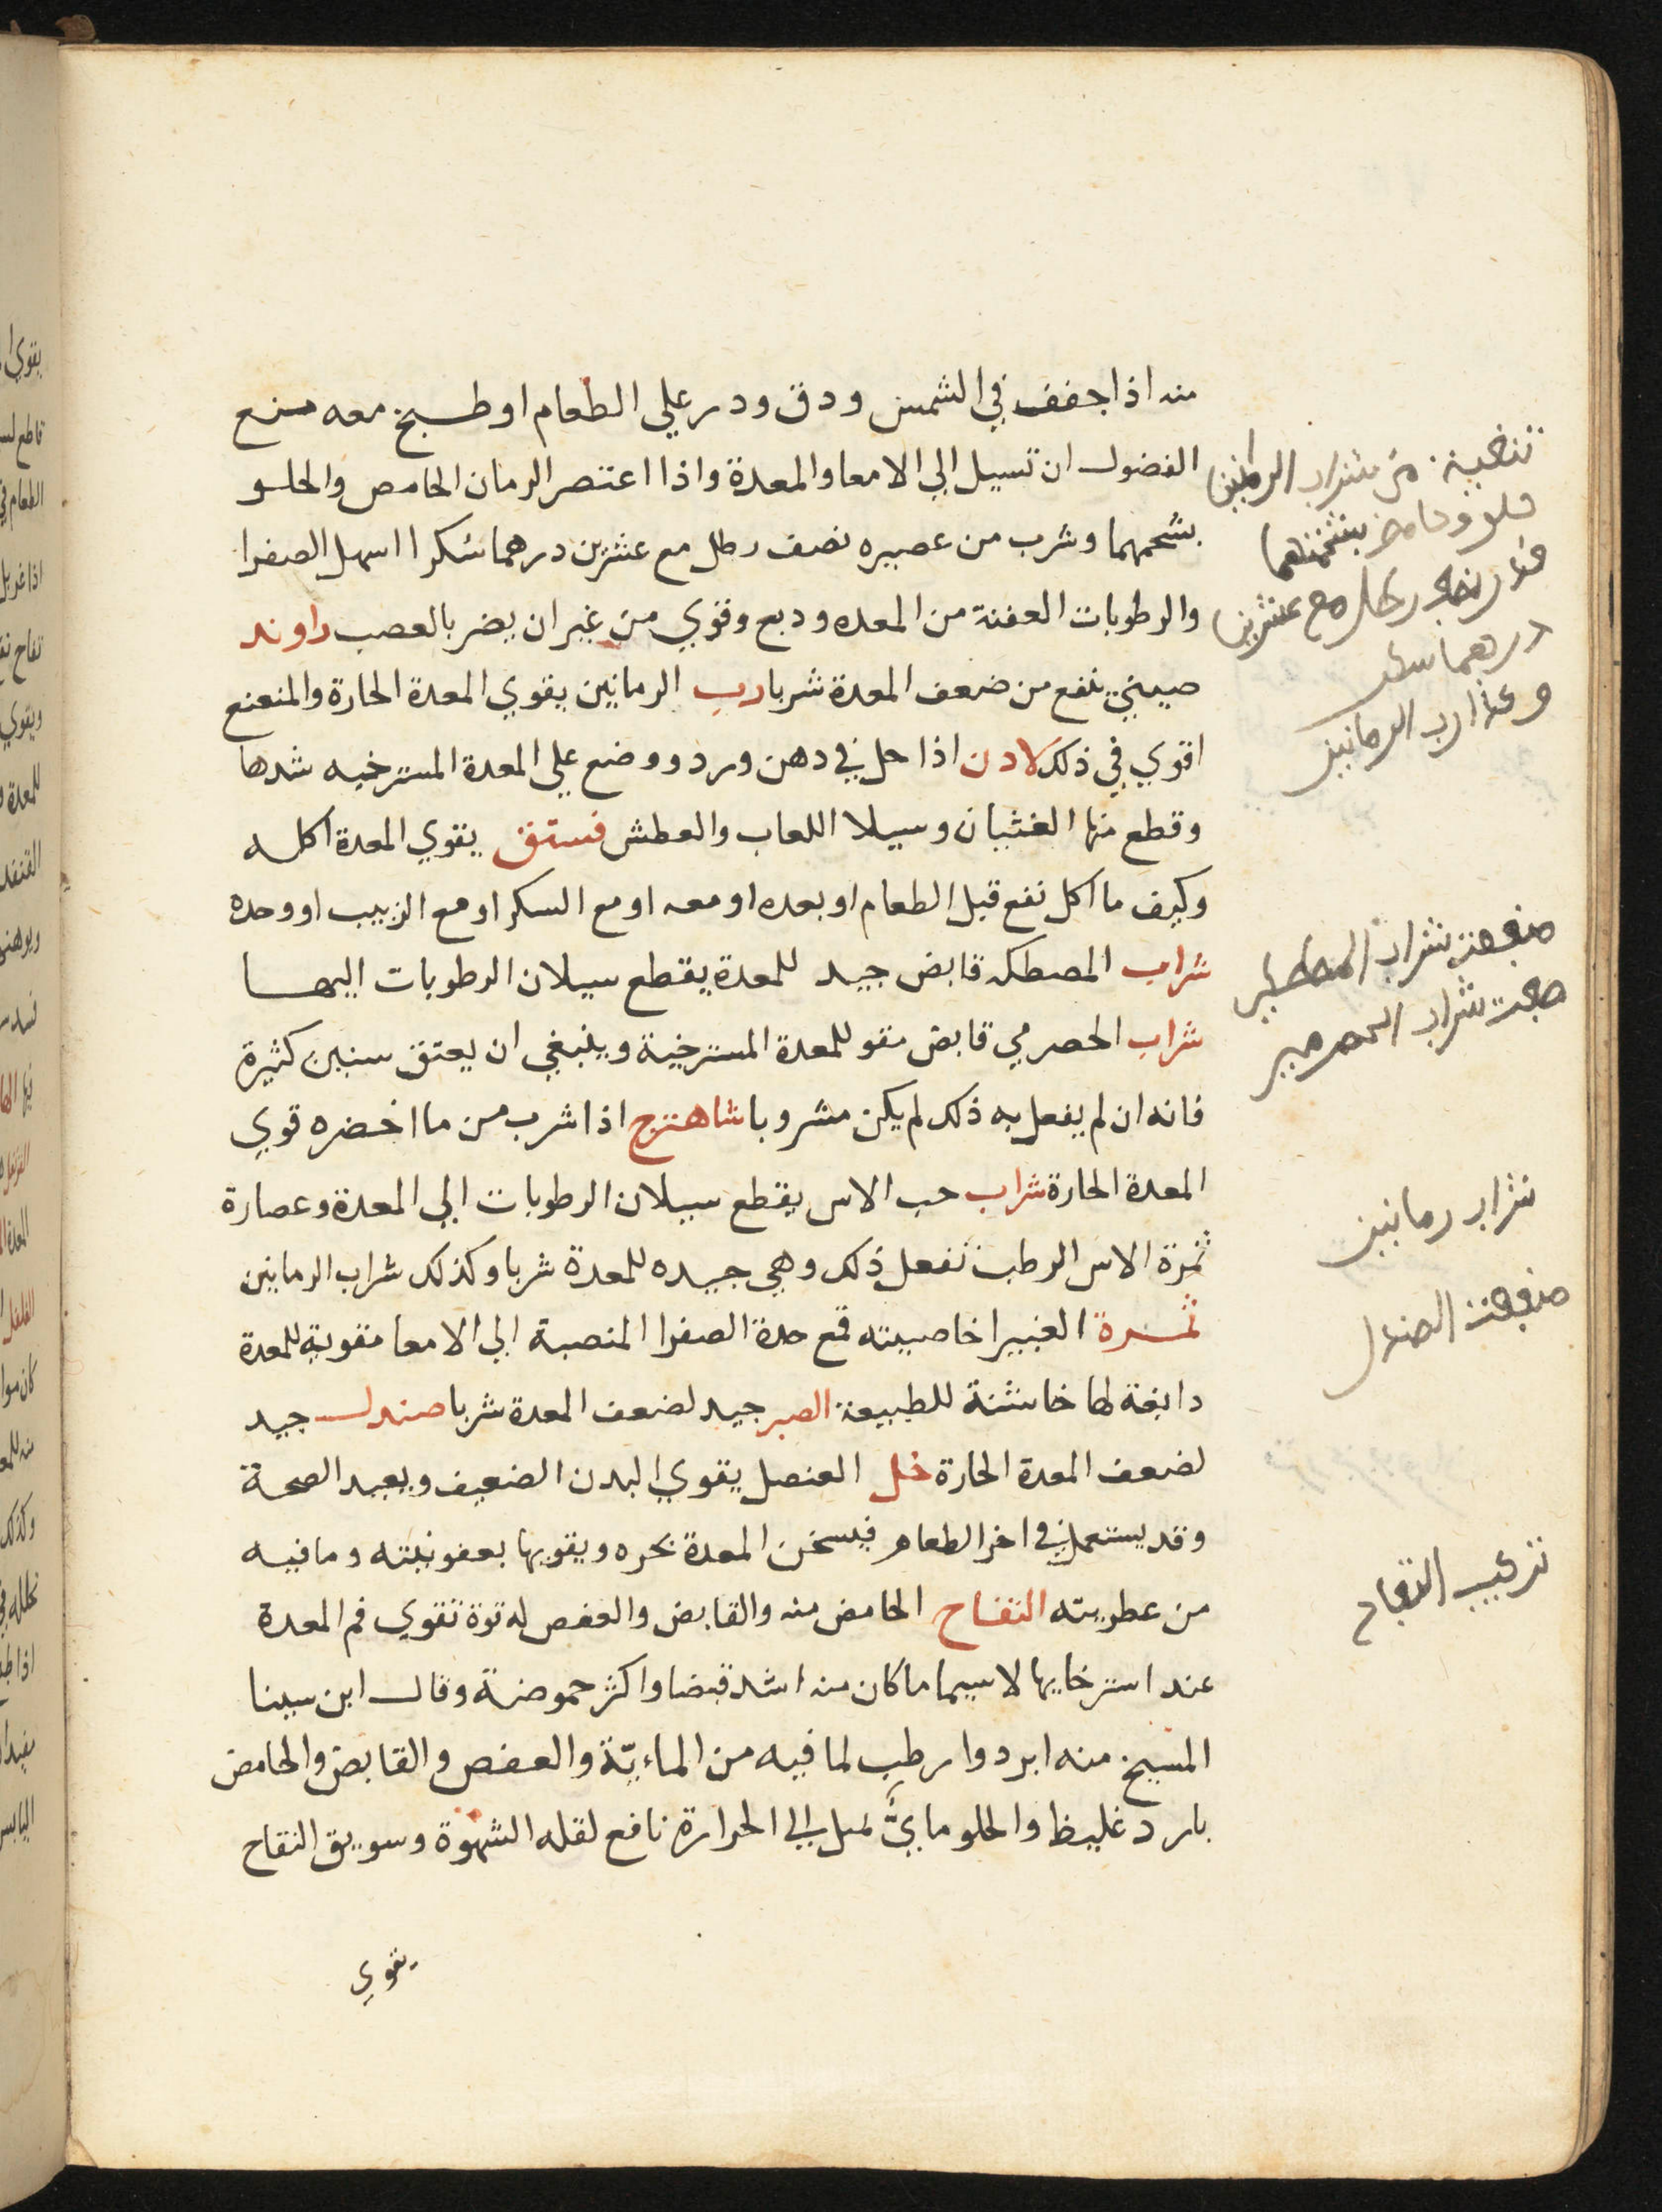 منه اذا جفف في الشمس ودق ودر علي الطعام او طبخ معه منع
الفضول ان تسيل الي الامعا والمعدة واذا اعتصر الرمان الحامص والحلو
بشحمهما وشرب من عصيره نصف رطل مع عشرين درهما سكرا اسهل الصفرا
والرطوبات العفنة من المعده ودبع وقوي من غير ان يضر بالعصب راوند
صيني ينفع من ضعف المعدة شربا رب الرمانين يقوي المعدة الحارة والمنعنع
اقوي في ذلك لادن اذا حل في دهن ورد ووضع علي المعدة المسترخيه شدها
وقطع منها الغثيان وسيلا اللعاب والعطش فستق يقوي المعدة اكله
وكيف ما اكل نفع قبل الطعام او بعده او معه او مع السكر او مع الزبيب او وحده
شراب المصطكه قابض جيد للمعدة يقطع سيلان الرطوبات اليها
شراب الحصرمي قابض مقو للمعدة المسترخية وينبغي ان يعتق سنين كثيرة
فانه ان لم يفعل به ذلك لم يكن مشروبا شاهترج اذا شرب من ما اخضره قوي
المعدة الحارة شراب حب الاس يقطع سيلان الرطوبات الي المعدة وعصارة
ثمرة الاس الرطب تفعل ذلك وهي جيده للمعدة شربا وكذلك شراب الرمانين
ثمرة الغبيرا خاصيته قمع حدة الصفرا المنصبة الي الامعا مقوية للمعدة
دابغة لها خاشنة للطبيعة الصبر جيد لضعف المعدة شربا صندل جيد
لضعف المعدة الحارة خل العنصل يقوي البدن الضعيف ويعيد الصحة
وقد يستعمل في اخر الطعام فيسخن المعدة بحره ويقويها بعفوصته وما فيه
من عطريته التفاح الحامض منه والقابض والعفص له قوة تقوي فم المعدة
عند استرخايها لا سيما ما كان منه اشد قبضا واكثر حموضة وقال ابن سينا
المسيخ منه ابرد وارطب لما فيه من الماءيّة والعفص والقابض والحامض
بارد غليظ والحلو ماييَّ يميل الي الحرارة نافع لقله الشهوة وسويق التفاح
يقوي
من شراب الرمانين
حلو وحامض بشحمهما
قدر نصف رطل مع عشرين
درهما سكر
وهذا رب الرمانين
منفعت شراب
شراب الحصرمي
شراب رمانين
منفعت الصندل
تركيب التفاح